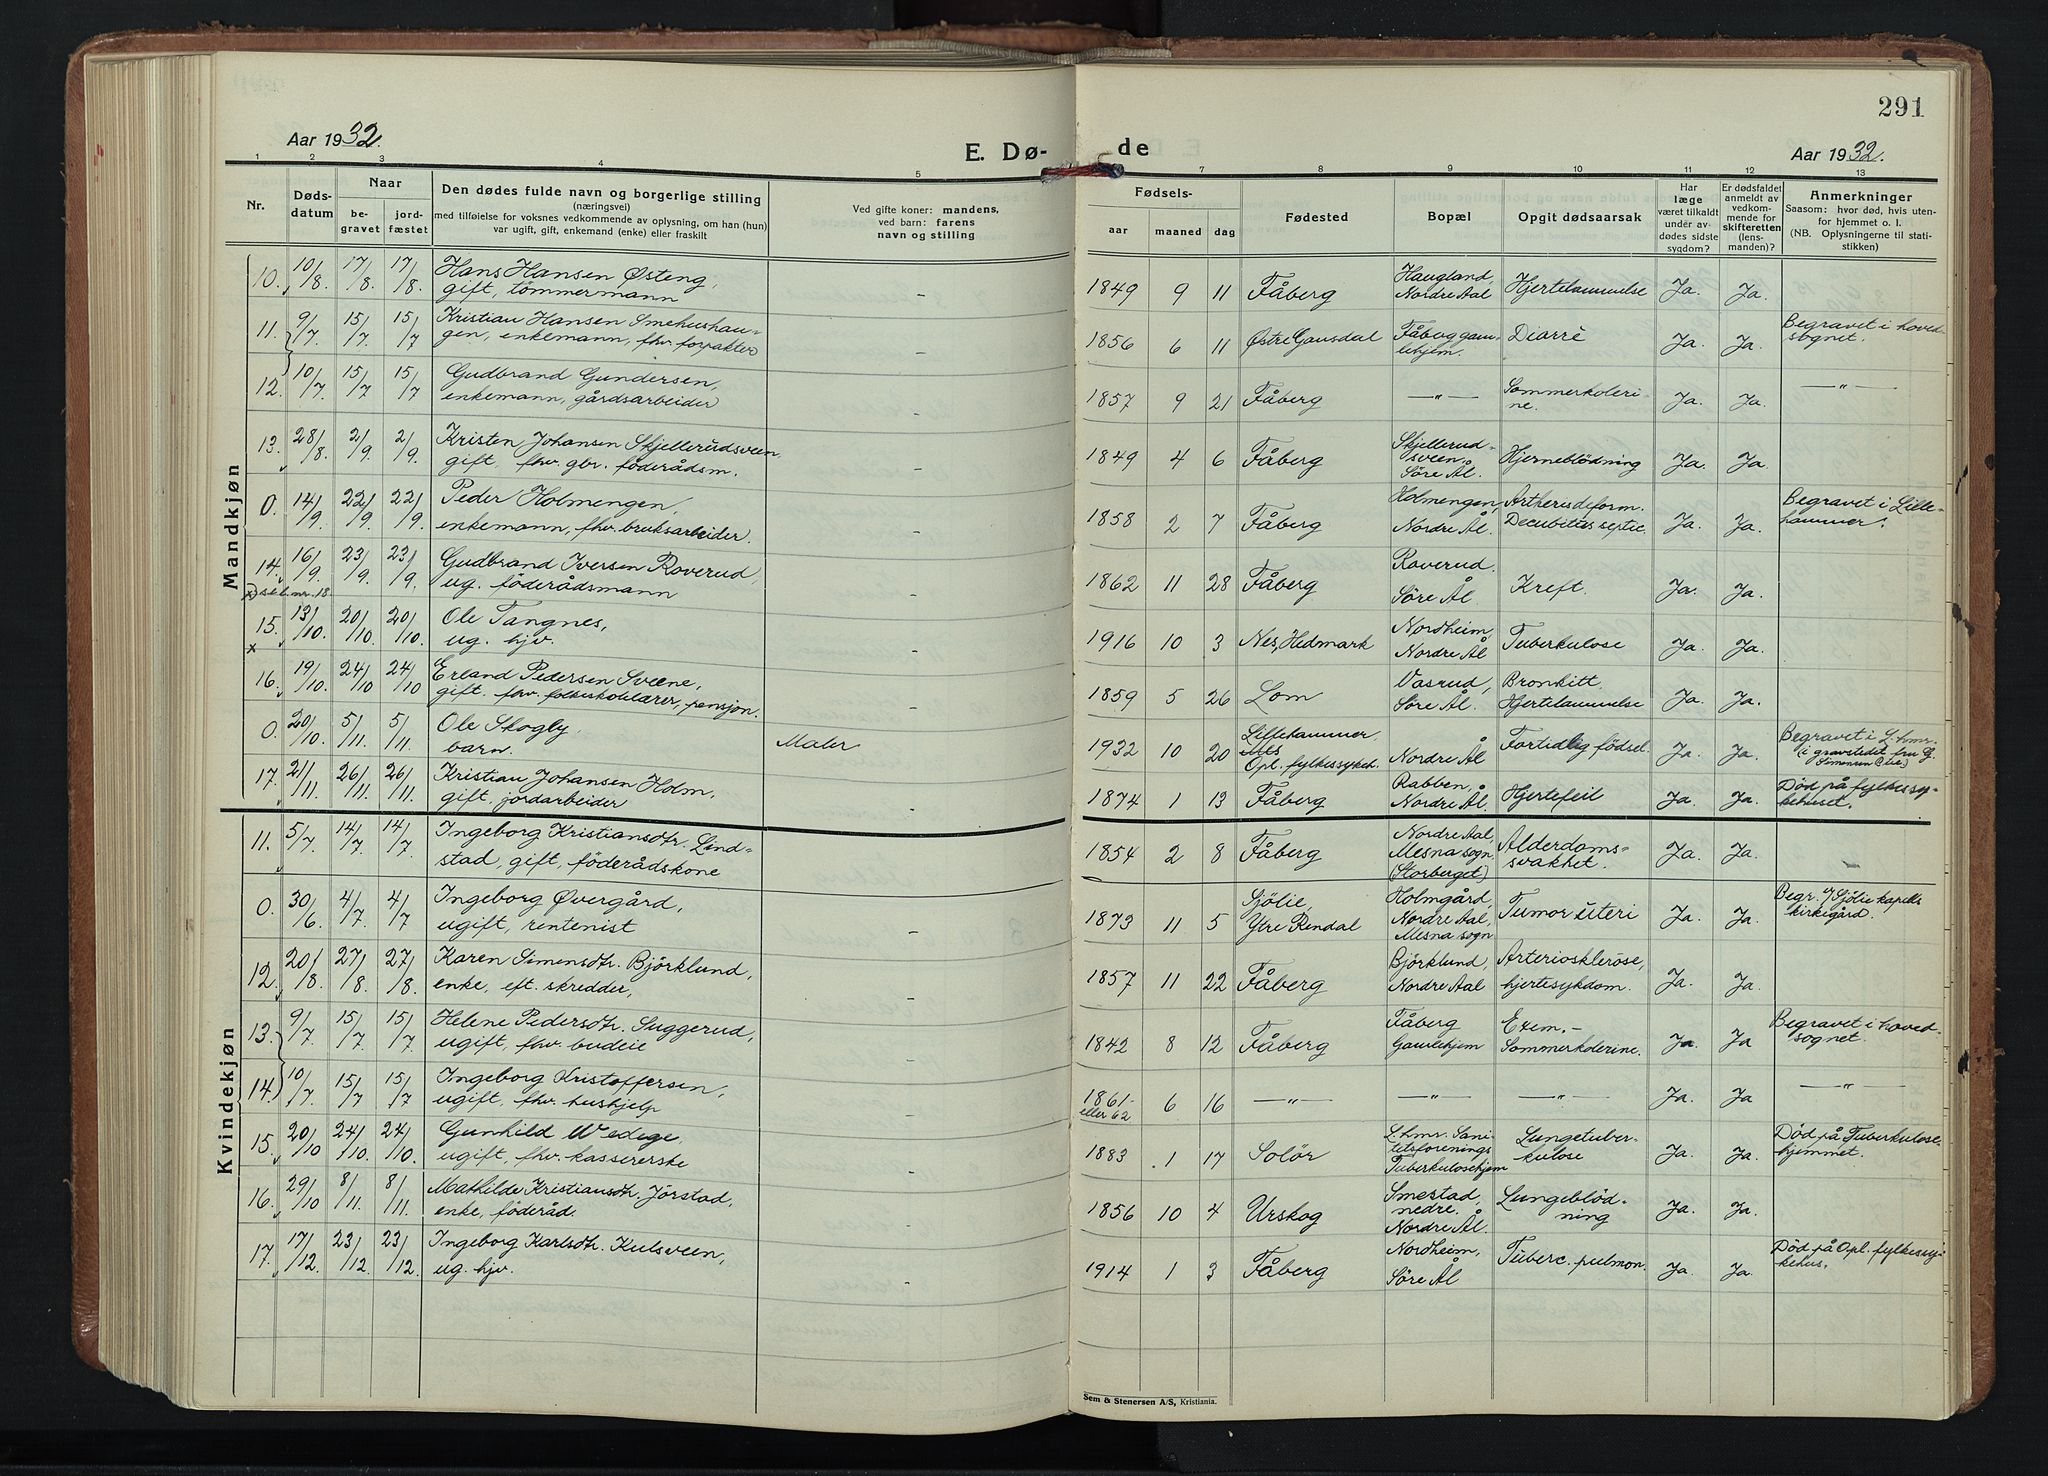 291
Aar 1932.
E. Dø-
de
Aar 1932.
1 2 3 4 5 7 8 9 10 11 12 13
Nr.
Døds-
datum
Naar
be-
gravet
jord-
fæstet
Den dødes fulde navn og borgerlige stilling
(næringsvei)
med tilføielse for voksnes vedkommende av oplysning, om han (hun)
var ugift, gift, enkemand (enke) eller fraskilt
Ved gifte koner: mandens,
ved barn: farens
navn og stilling
Fødsels-
aar maaned dag
Fødested
Bopæl
Opgit dødsaarsak
Har
læge
været tilkaldt
under av-
dødes sidste
sygdom?
Er dødsfaldet
anmeldt av
vedkom-
mende for
skifteretten
(lens-
manden)?
Anmerkninger
Saasom: hvor død, hvis uten-
for hjemmet o. l.
(NB. Oplysningerne til stati-
stikken)
Mandkjøn
10. 10/8 17/8. 17/8. Hans Hansen Østeng,
gift, tømmermann -
1849 9 11 Fåberg Haugland, Hjertelammelse Ja. Ja.
Nordre Aal
11. 9/7 15/7 15/7 Kristian Hansen Smehushau-
gen, enkemann, fhv. forpakter -
1856 6 11 Østre Gausdal Fåberg gam- Diarrè Ja. Ja. Begravet i hoved-
lehjem. sognet.
12. 10/7 15/7 15/7 Gudbrand Gundersen,
enkemann, gårdsarbeider -
1857 9 21 Fåberg —"— Sommerkoleri- Ja. Ja. —"—
ne.
13. 28/8 2/9 2/9 Kristen Johansen Skjellerudsveen
gift, fhv. gbr. föderådsm. -
1849 4 6 Fåberg Skjellerud- Hjerneblödning Ja. Ja.
sveen,
Söre Ål.
0. 14/9 22/9 22/9. Peder Holmengen,
enkemann, fhv. bruksarbeider. -
1858 2 7 Fåberg Holmengen, Artheris deform. Ja. Ja. Begravet i Lille-
Nordre Ål. Decubitus septic. hammer.
14. 16/9 23/9 23/9. Gudbrand Iversen Roverud,
ug. föderådsmann -
x) se l. nr. 18.
1862 11 28 Fåberg Roverud. Kreft. Ja. Ja.
Söre Ål
15. 13/10. 20/10 20/10. Ole Tangnes,
x ug. hjv. -
1916 10 3 Nes, Hedmark Nordheim, Tuberkulose Ja. Ja.
Nordre Ål
16. 19/10. 24/10 24/10 Erland Pedersen Sveene,
gift. fhv. folkeskolelærer, pensjon.
1859 5 26 Lom Vasrud, Bronkitt, Ja. Ja.
Söre Ål. Hjertelammelse
0. 20/10. 5/11. 5/11. Ole Skogby, Maler
barn.
1932 10 20 Lillehammer Nordre Ål Fortidlig födsel. Ja. Ja. Begravet i L.hmr.
Opl. fylkessykeh. (i gravstedet fru G.
Simensen
17. 21/11. 26/11 26/11. Kristian Johansen Holm,
gift, jordarbeider -
1874 1 13 Fåberg Rabben, Hjertefeil Ja. Ja. Död på fylkessy-
Nordre Ål. kehuset.
Kvindekjøn
11. 5/7. 14/7 14/7 Ingeborg Kristiansdtr. Lind-
stad, gift, föderådskone
1854 2 8 Fåberg Nordre Aal, Alderdoms- Ja. Ja. —
Mesna sogn svakhet.
(Storberget)
0. 30/6 4/7 4/7 Ingeborg Øvergård,
ugift, rentenist -
1873 11 5 Sjölie, Holmgård, Tumor uteri Ja. Ja. Begr. Sjölie kapells
Ytre Rendal Nordre Aal, kirkegård.
Mesna sogn
12. 20/8. 27/8. 27/8. Karen Simensdtr. Björklund,
enke, eft. skredder, -
1857 11 22 Fåberg Björklund, Arteriosklerose, Ja. Ja.
Nordre Aal hjertesykdom.
13. 9/7 15/7 15/7 Helene Pedersdtr. Suggerud,
ugift, fhv. budeie -
1842 8 12 Fåberg Fåberg Exem.- Ja. Ja Begravet i hoved-
Gamlehjem Sommerkolerine. sognet.
14. 10/7 15/7 15/7 Ingeborg Kristoffersen,
ugift, fhv. hushjelp -
1861- 6 16 —"— —"— —"— Ja. Ja —"—
eller 62
15. 20/10 24/10. 24/10. Gunhild Wedege,
ugift, fhv. kassererske -
1883 1 17 Solör L.hmr. Sani- Lungetuber- Ja. Ja. Död på Tuberkulose-
tetsforenings kulose hjemmet.
Tuberkulosehjem
16. 29/10 8/11. 8/11. Mathilde Kristiansdtr. Jörstad,
enke, föderåd. -
1856 10 4 Urskog Smestad, Lungeblöd- Ja. Ja.
nedre. ning
Nordre Ål.
17. 17/12. 23/12. 23/12. Ingeborg Karlsdtr. Kulsveen,
ug. hjv. -
1914 1 3 Fåberg Nordheim, Tuberc. pulmon. Ja. Ja. Död på Opl. fylkessy-
Söre Ål kehus.
Sem & Stenersen A/S, Kristiania.